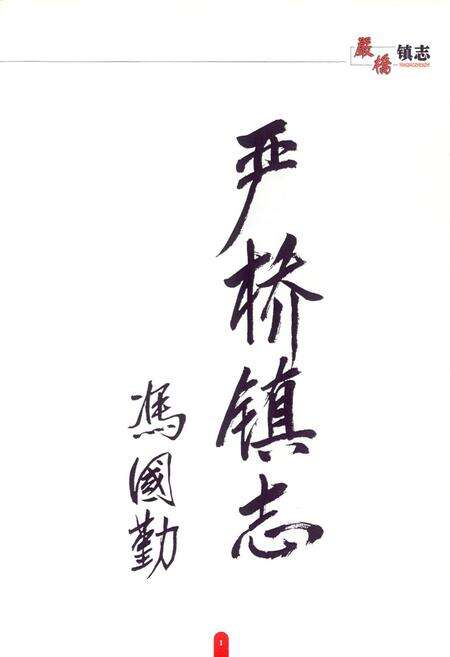 嚴橋
镇志
YANQIAOZHENZHI
严桥镇志
馮國勤
1